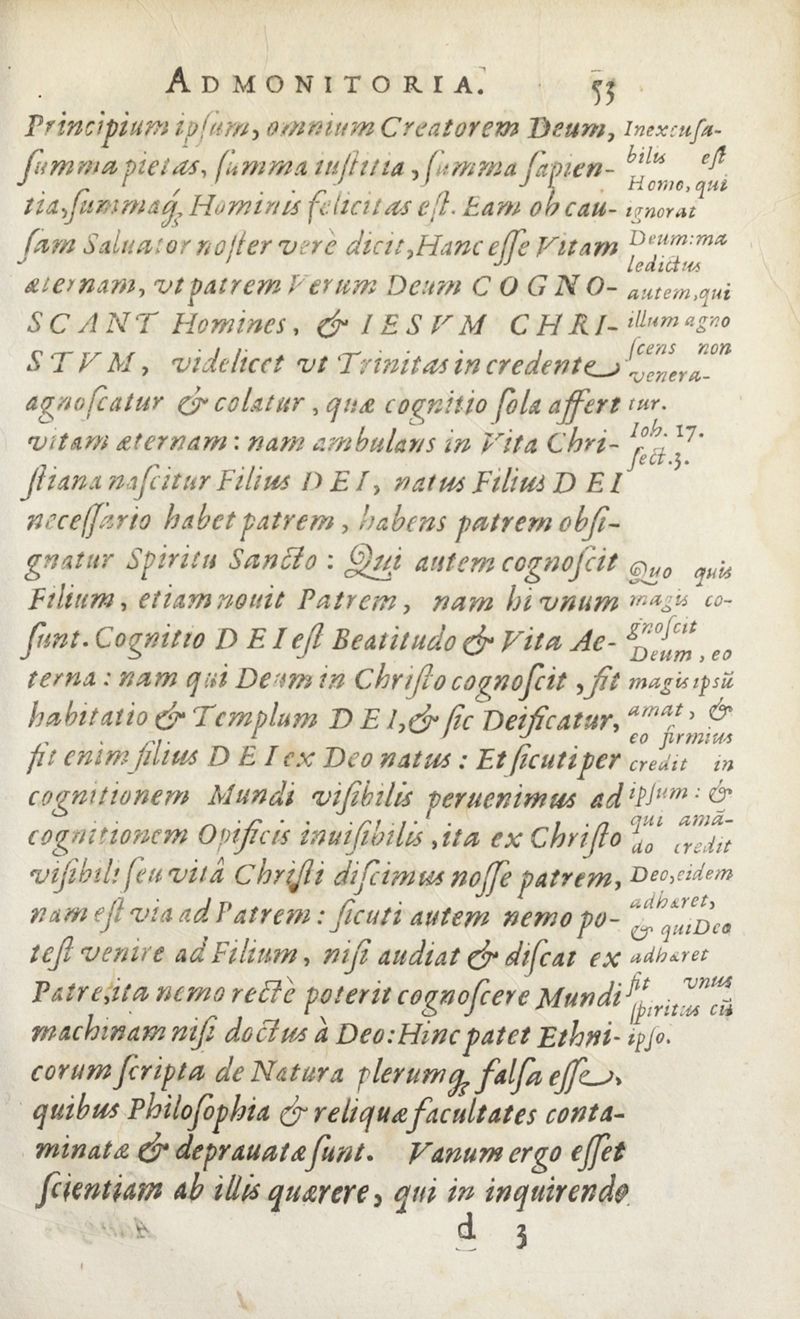 ADMONITORIA. 53
Principium ipſum, omnium Creatorem Deum,
ſumma pietas, ſumma iuſtitia, ſumma ſapien-
tia, ſummaq; Hominis felicitas eſt. Eam ob cau-
ſam Saluator noſter verè dicit, Hanc eſſe Vitam
æternam, vt patrem Verum Deum COGNO-
SCANT Homines, & IESVM CHRI-
STVM, videlicet vt Trinitas in credente
agnoſcatur & colatur, quæ cognitio ſola affert
vitam æternam: nam ambulans in Vita Chri-
ſtiana naſcitur Filius DEI, natus Filius DEI
neceſſario habet patrem, habens patrem obſi-
gnatur Spiritu Sancto: Qui autem cognoſcit
Filium, etiam nouit Patrem, nam hi vnum
ſunt. Cognitio DEI eſt Beatitudo & Vita Ae-
terna: nam qui Deum in Chriſto cognoſcit, fit
habitatio & Templum DEI, & ſic Deificatur,
fit enim filius DEI ex Deo natus: Et ſicuti per
cognitionem Mundi viſibilis peruenimus ad
cognitionem Opificis inuiſibilis, ita ex Chriſto
viſibili ſeu vitâ Chriſti diſcimus noſſe patrem,
nam eſt via ad Patrem: ſicuti autem nemo po-
teſt venire ad Filium, niſi audiat & diſcat ex
Patre, ita nemo rectè poterit cognoſcere Mundi
machinam niſi doctus à Deo: Hinc patet Ethni-
corum ſcripta de Natura plerumq; falſa eſſe,
quibus Philoſophia & reliquæ facultates conta-
minatæ & deprauatæ ſunt. Vanum ergo eſſet
ſcientiam ab illis quærere, qui in inquirendo
d 3
Inexcuſa-
bilis eſt
Homo, qui
ignorat
Deum: ma
ledictus
autem, qui
illum agno
ſcens non
venera-
tur.
Ioh. 17.
ſect. 3.
Quo quis
magis co-
gnoſcit
Deum, eo
magis ipsũ
amat, &
eo firmius
credit in
ipſum: &
qui amā-
do credit
Deo, eidem
adhæret,
& qui Deo
adhæret
fit vnus
ſpiritus cũ
ipſo.